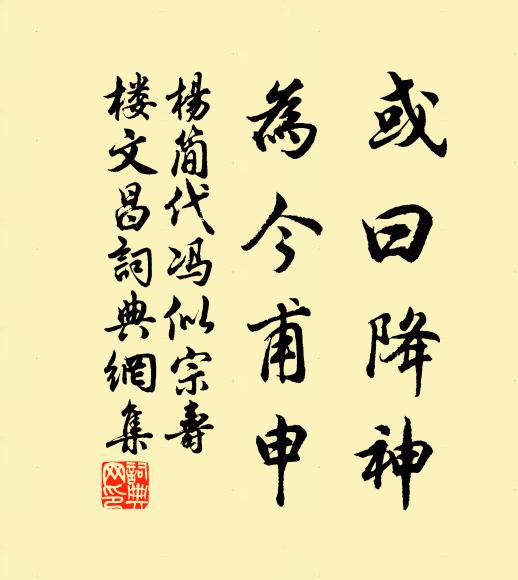 或曰降神
為今甫申
楊简代冯似宗壽
楼文昌詞典網集
詞典网印